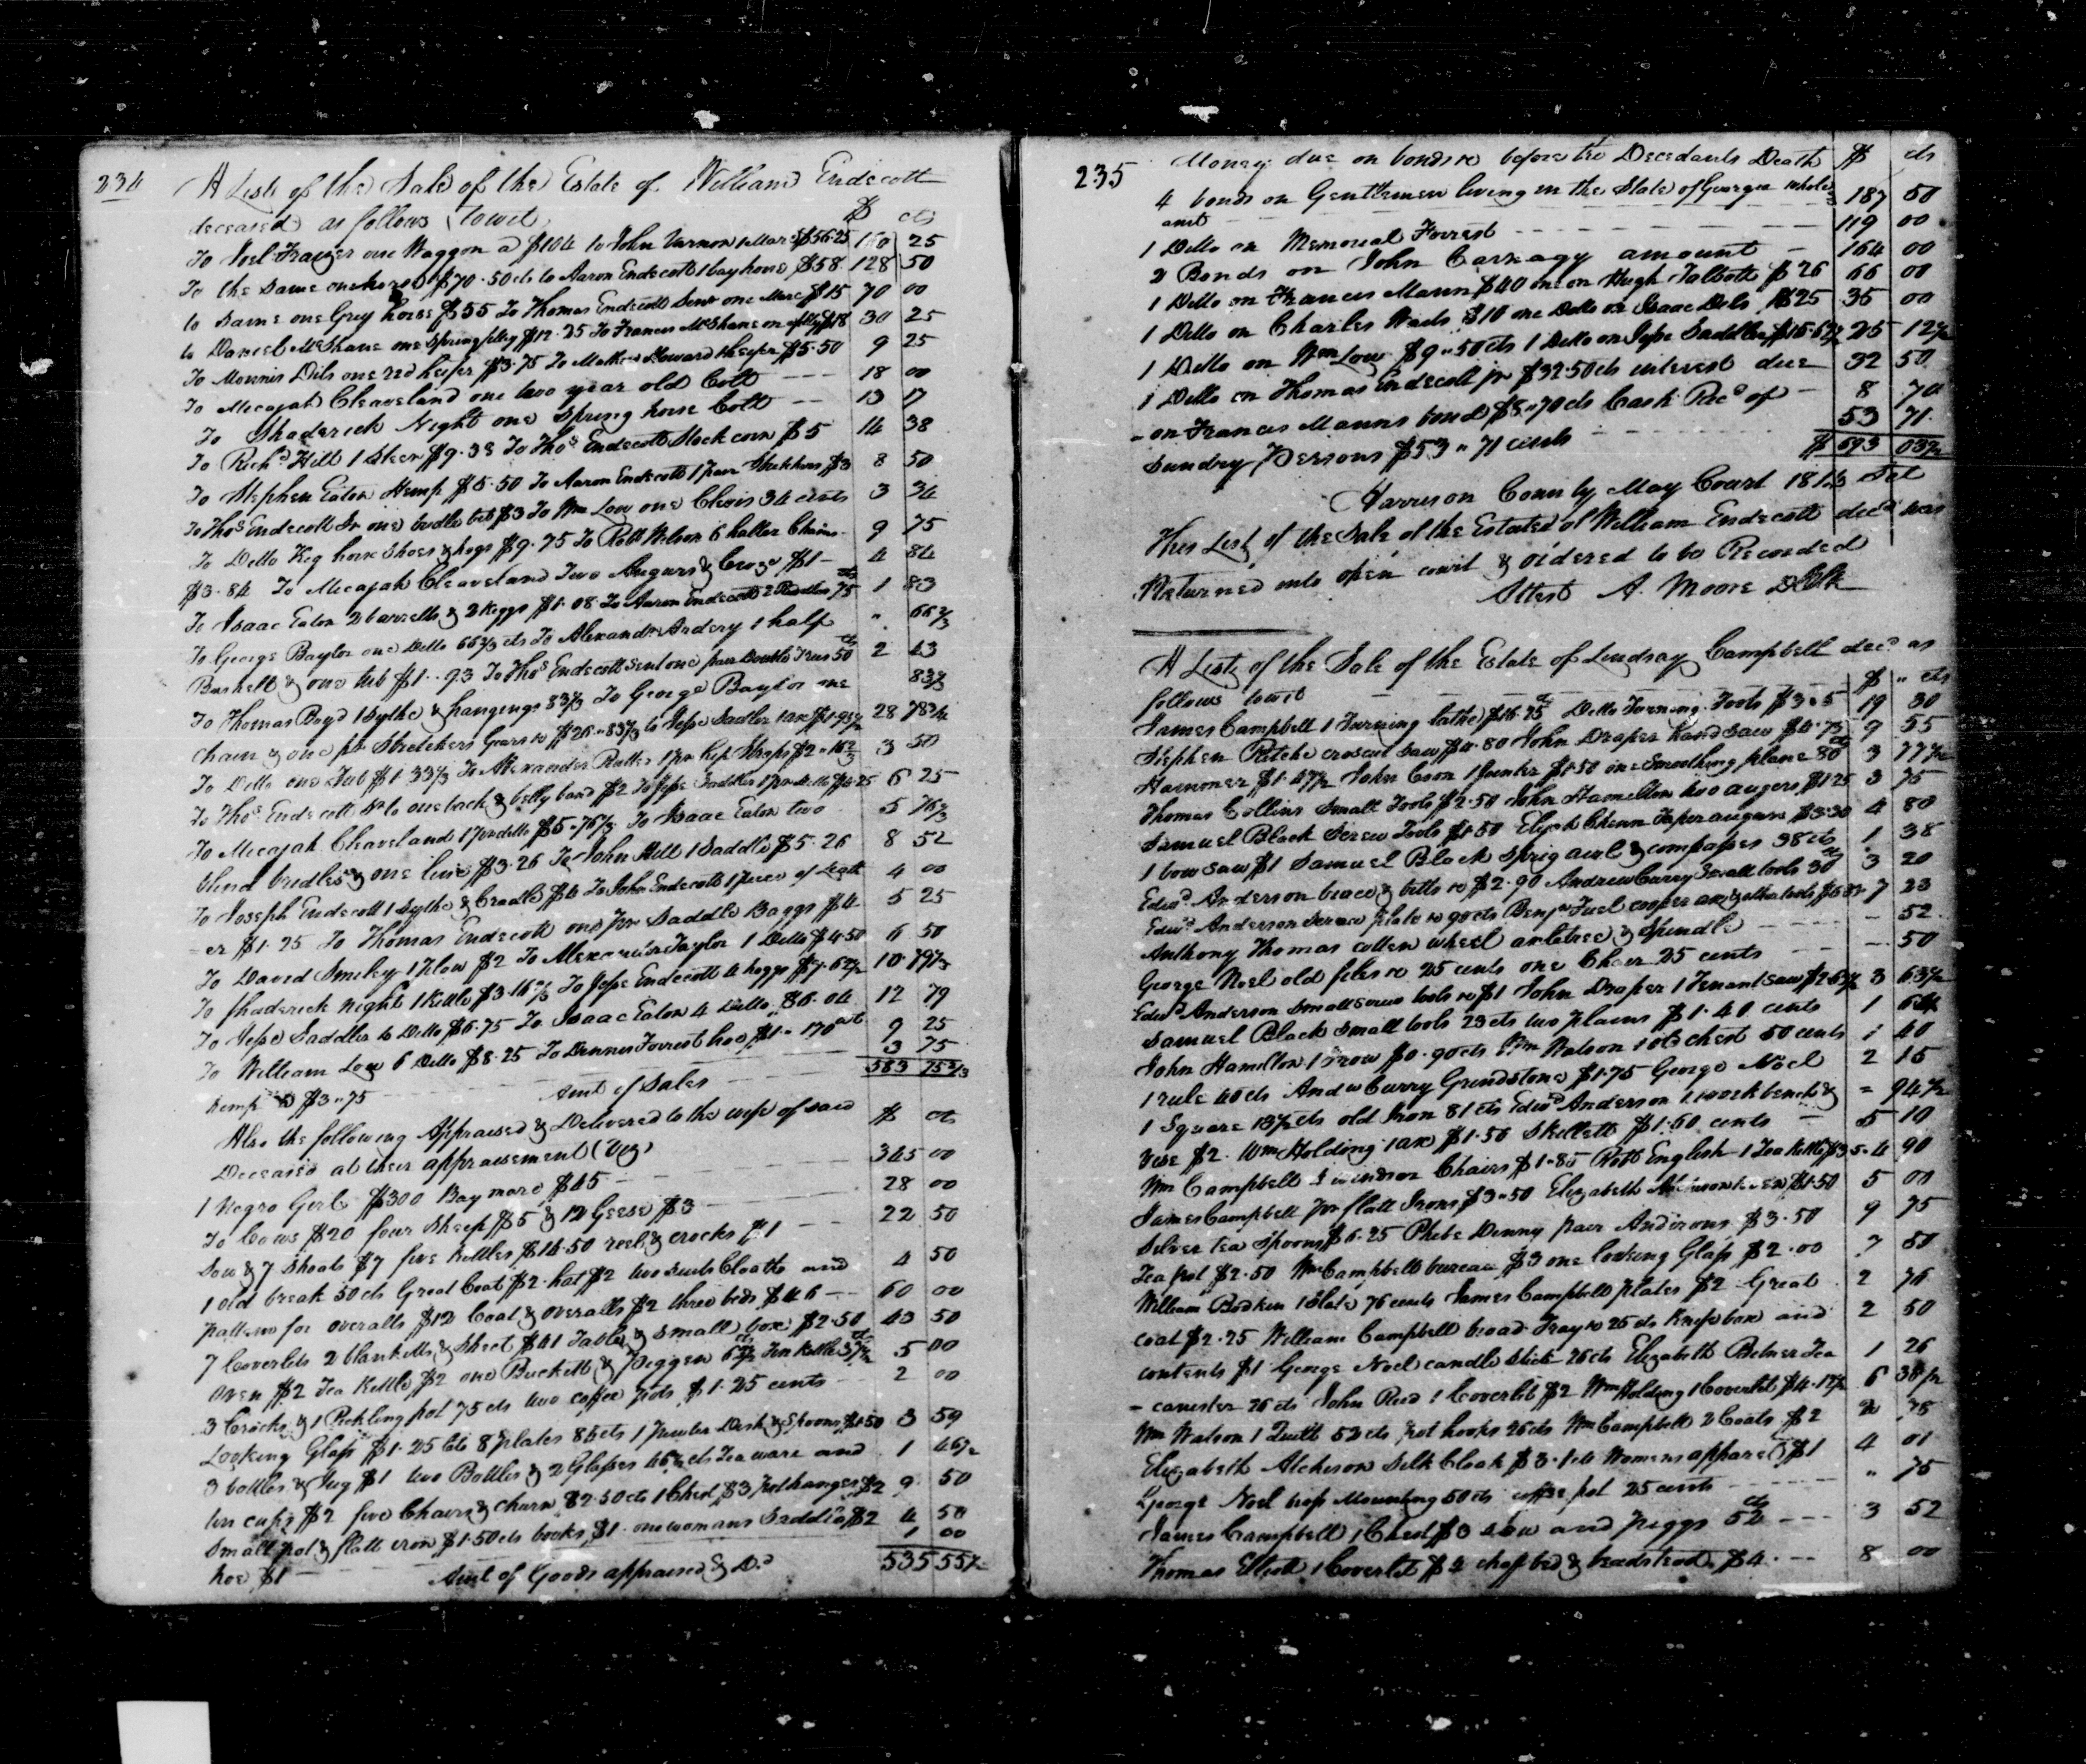 234
A List of the Sale of the Estate of William Endecott
deceased as follows (towit) $ cts
To Joel Frazer one Waggon a $104 to John Varnon 1 Mare $56.25 160 25
To the same one horse $70.50 cts to Aaron Endecott 1 bay horse $58 128 50
to Same one Grey horse $55 To Thomas Endecott Senr one Mare $15 70 00
to Daniel McShane one Spring filley $12.25 To Francis McShane on filley $18 30 25
To Morris Dils one red heifer $3.75 To Howard 1 heifer $5.50 9 25
To Micajah Cleaveland one two year old Colt 18 00
To Shaderick Night one Spring horse Colt 13 17
To Richd Hill 1 Steer $9.38 To Thos Endecott Stack corn $5 14 38
To Stephen Eaton Hemp $5.50 To Aaron Endecott 1 pair Stretchers $3 8 50
To Thos Endecott Sr one bridle bit $3 To Wm Low one Clevis 34 cents 3 34
To Ditto Keg horse Shoes & hogs $9.75 To Robt Wilson 6 halter Chains 9 75
$3.84 To Micajah Cleaveland Two Augurs & $1 4 84
To Isaac Eaton 2 barrells & 2 Keggs $1.08 To Aaron Endecott 2 75 cts 1 83
To George Baylor one Ditto 66 2/3 cts To Alexandr Ardery 1 half " 66 2/3
Bushell & one tub $1..93 To Thos Endecott Sen one pair Double Trees 50 cts 2 43
To Thomas Boyd 1 Sythe & hangings 83 1/3 To George Baylor one 83 1/3
Chain & one pr Stretchers Gears &c $26.83 1/3 to Jesse Sadler 1 axe $1.95 1/2 28 78 3/4
To Ditto one Tub $1.33 1/3 To Alexander 1 pr hip Straps $2.16 2/3 3 50
To Thos Endecott Sr to one back & belly band $2 To Jesse Saddler 1 pr Ditto $4.25 6 25
To Micajah Cleaveland 1 pr ditto $5.76 2/3 To Isaac Eaton two 5 76 2/3
blind bridles & one line $3.26 To John Hill 1 Saddle $5.26 8 52
To Joseph Endecott 1 Sythe & Cradle $4 To John Endecott 1 piece of Leath 4 00
-er $1.25 To Thomas Endecott one pr Saddle Baggs $4 5 25
To David Smiley 1 plow $2 To Alexander Taylor 1 Ditto $4.50 6 50
To Shaderick Night 1 Kettle $3.16 2/3 To Jesse Endecott 4 hoggs $7.62 1/2 10 79 1/3
To Jesse Saddler to Ditto $6.75 To Isaac Eaton 4 Ditto $6.04 12 79
To William Low 6 Ditto $8.25 To Dennis Forrest hoe $1 9 25
hemp $3.75 3 75
Amt of Sales 583 75 2/3
Also the following Appraised & Delivered to the wife of said
Deceased at their appraisement (Viz) $ cts
1 Negro Girl $300 Bay mare $45 345 00
To Cows $20 four Sheep $5 & 12 Geese $3 28 00
Sow & 7 Shoats $7 five Kettles $14.50 reel & crocks $1 22 50
1 old break 50 cts Great Coat $2 hat $2 two suits Cloaths and 4 50
pattern for overalls $12 Coat & overalls $2 three beds $46 60 00
7 Coverlets 2 blanketts & Sheet $41 Table & small box $2.50 43 50
oven $2 Tea Kettle $2 one Buckett & Piggen 62 1/2 cts 37 1/2 cts 5 00
3 Crocks & 1 Pickling pot 75 cts two coffee pots $1.25 cents 2 00
Looking Glass $1.25 cts 8 plates 84 cts 1 Pewter Dish & Spoons $1.50 3 59
3 bottles & Jug $1 two Bottles & 2 Glasses 46 1/2 cts Tea ware and 1 46 1/2
tin cups $2 five Chairs & churn $2.50 cts 1 Chest $3 pot hanger $2 9 50
Small pot & flatt iron $1.50 cts books $1 one womans Saddle $2 4 50
hoe $1 1 00
Amt of Goods appraised & Dd 535 55 1/2
235
Money due on bonds &c before the Decedants Death $ cts
4 bonds on Gentlemen living in the State of Georgia whole
amt 187 50
1 Ditto on Memorial Forrest 119 00
2 Bonds on John Carnagy amount 164 00
1 Ditto on Francis Mann $40 one on Hugh Talbott $26 66 00
1 Ditto on Charles Wads $10 one Ditto on Isaac Dils $25 35 00
1 Ditto on Wm Low $9.50 cts 1 Ditto on Jesse Saddler $15.62 1/2 25 12 1/2
1 Ditto on Thomas Endecott jr $32.50 cts interest due 32 50
- on Francis Manns bond $8.70 cts Cash Recd of 8 70
Sundry Persons $53.71 cents 53 71
$ 693 03 1/2
Harrison County May Court 1813 Sct
This List of the Sale of the Estate of William Endecott decd was
Returned into open court & ordered to be Recorded
Attest A. Moore DClk
A List of the Sale of the Estate of Lindsay Campbell decd as
follows towit $ cts
James Campbell 1 Turning lathe $16.25 Ditto Turning Tools $3.5 19 30
Stephen Ritche croscut saw $4.80 John Draper hand saw $4.75 9 55
Hammer $1.47 1/2 John Coon 1 Jointer $1.50 one Smoothing plane 80 cts 3 77 1/2
Thomas Collins Small Tools $2.50 John Hamilton two augers $1.25 3 75
Samuel Black Screw Tools $1.50 Elijah Chinn Taper augurs $3.30 4 80
1 bow saw $1 Samuel Black Sprig awl & compasses 38 cts 1 38
Edwd Anderson brace & bitts &c $2.90 Andrew Curry Small tools 30 cts 3 20
Edwd Anderson Screw plate &c 90 cts Benja Fuel cooper axe & other tools 7 23
Anthony Thomas cotton wheel axletree & Spindle - 52
George Noel old files &c 25 cents one Chair 25 cents - 50
Edwd Anderson small screw tools &c $1 John Draper 1 Tenant saw $2.63 1/2 3 63 1/2
Samuel Black small tools 23 cts two plains $1.40 cents 1 64
John Hamilton 1 Frow $0.90 cts Wm Watson 1 old chest 50 cents 1 40
1 rule 40 cts Andw Curry Grindstone $1.75 George Noel 2 15
1 Square 13 1/2 cts old Iron 81 cts Edwd Anderson 1 work bench & = 94 1/2
Vise $2 Wm Holding 1 axe $1.50 Skillett $1.60 cents 5 10
Wm Campbell 3 windsor Chairs $1.85 Robt English 1 Tea Kettle $3.5 4 90
James Campbell pr flatt Irons $3.50 Elizabeth $1.50 5 00
Silver tea Spoons $6.25 Phebe Denny pair Andirons $3.50 9 75
Tea pot $2.50 Wm Campbell bureau $3 one looking Glass $2.00 7 50
William Bodkin 1 Slate 76 cents James Campbell plates $2 Great 2 76
coat $2.25 William Campbell bread Tray &c 25 cts Knife box and 2 50
contents $1 George Noel candle Stick 26 cts Elizabeth Tea 1 26
- canister 26 cts John Reed 1 Coverlet $2 Wm Holding 1 Coverlet $4.12 1/2 6 38 1/2
Wm Watson 1 Quilt 52 cts pot hooks 26 cts Wm Campbell 2 Coats $2 2 78
Elizabeth Atcheson Silk Cloak $3.1 cts Womens apparel $1 4 01
George Noel Mounting 50 cts coffee pot 25 cents " 75
James Campbell 1 Chest $3 sow and piggs 52 cts 3 52
Thomas Elliott 1 Coverlet $4 chaf bed & beadstead $4 8 00